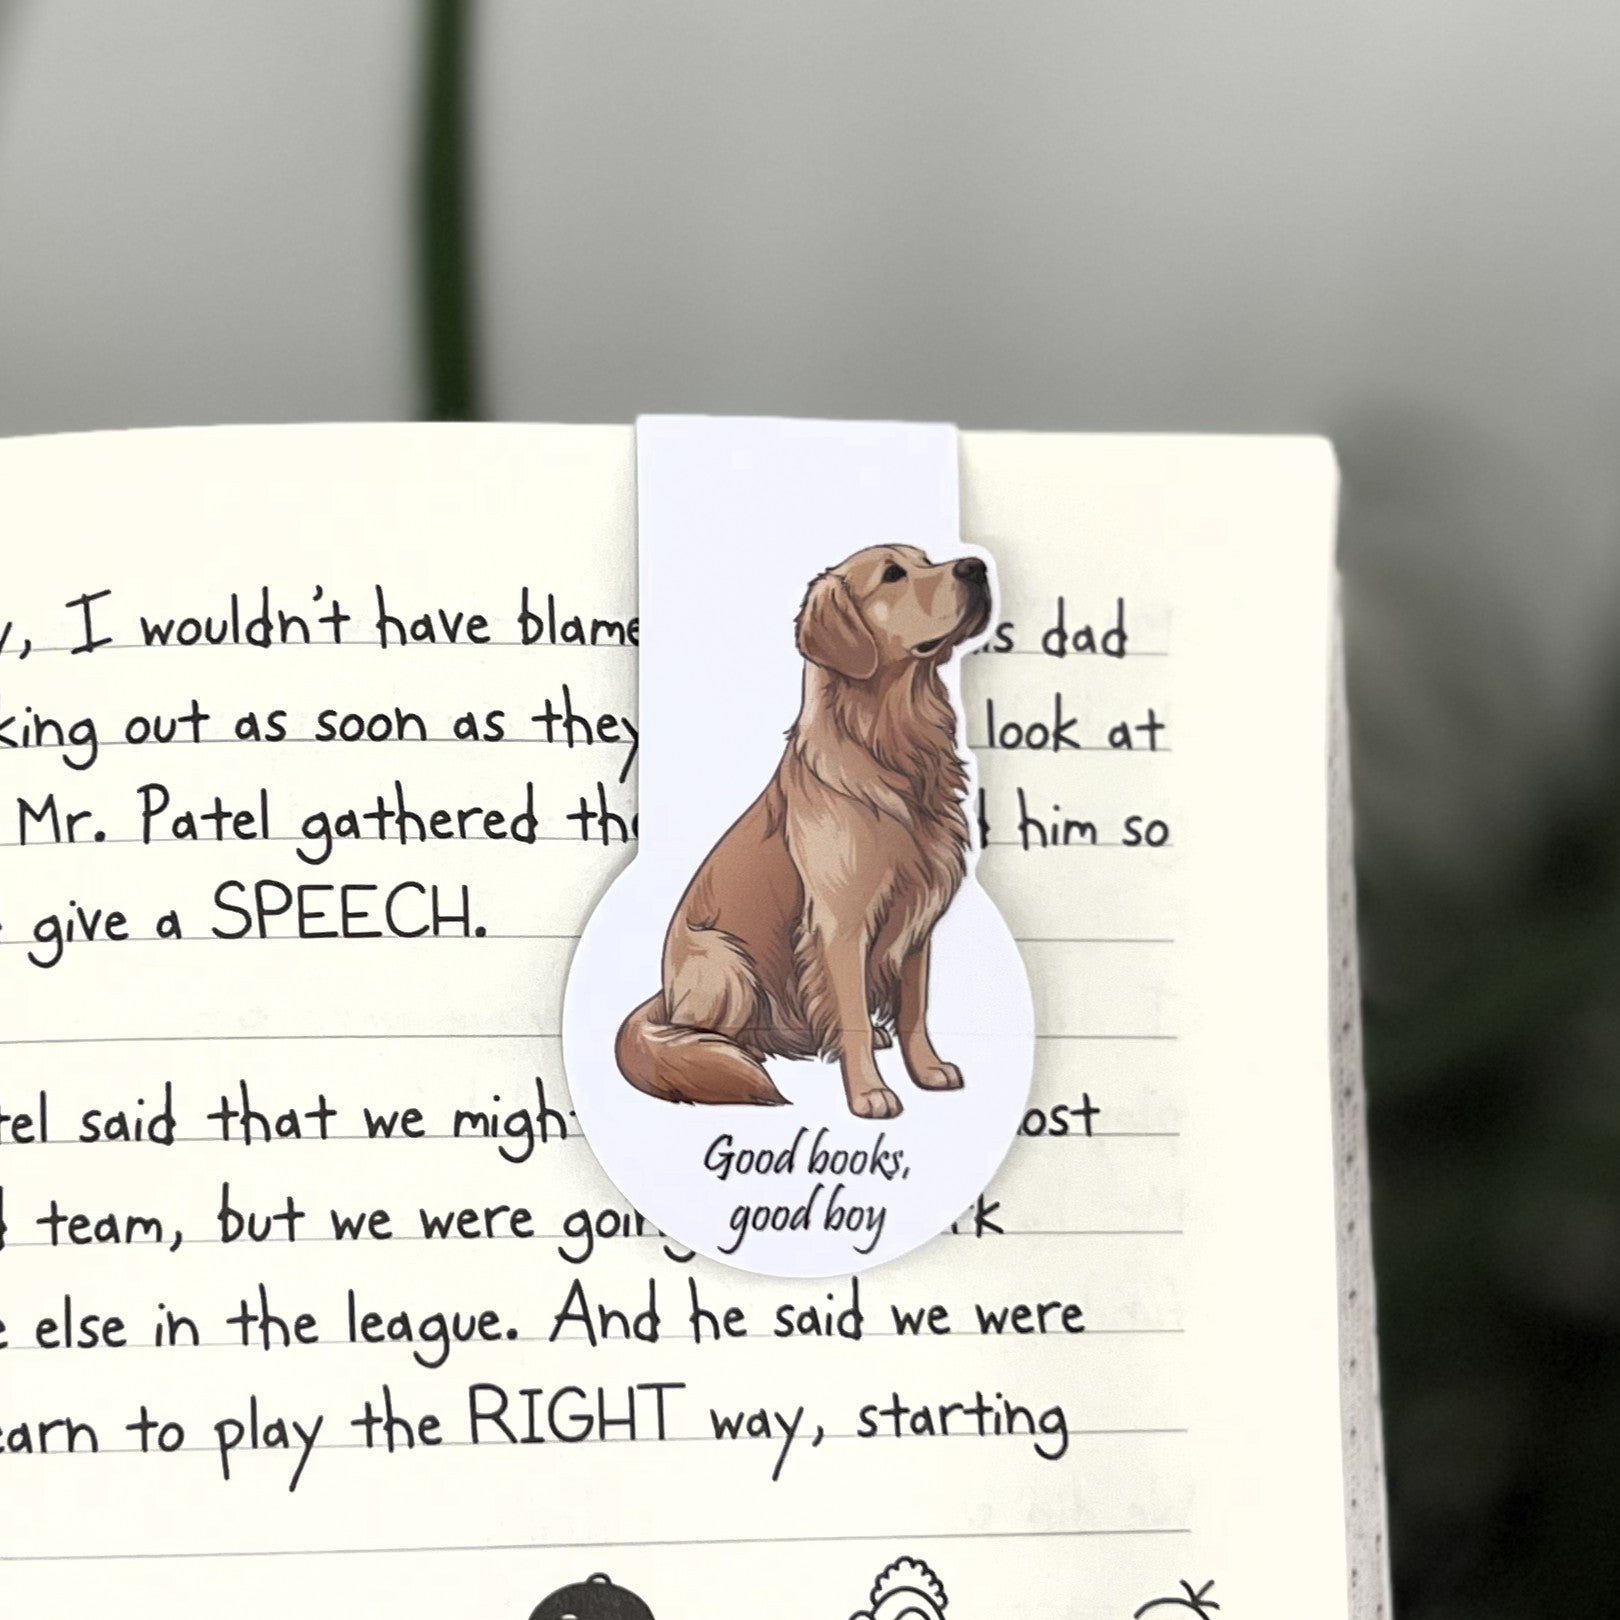 I wouldn't have blame dad
out as soon as they look at
Mr. Patel gathered him so
give a SPEECH.
said that we
team, but we were
else in the league. And he said we were
to play the RIGHT way, starting
Good books,
good boy